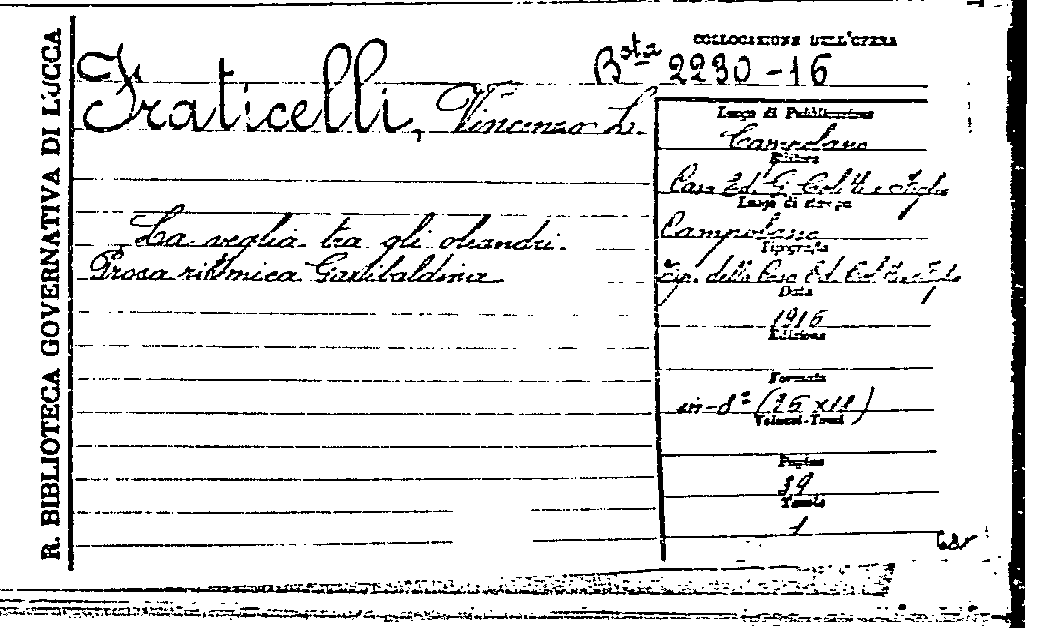 R. BIBLIOTECA GOVERNATIVA DI LUCCA
COLLOCAZIONE DELL'OPERA
Bsta 2230-16
Fraticelli, Vincenzo L.
La veglia tra gli oleandri.
Prosa ritmica Garibaldina
Luogo di Pubblicazione
Campolano
Editore
Casa Ed. G. Colitti e Figlio
Luogo di stampa
Campolano
Tipografia
Tip. della Casa Ed. Colitti e Figlio
Data
1916
Edizione
Formato
in-8º
Volumi-Tomi
Pagine
Tavole
1